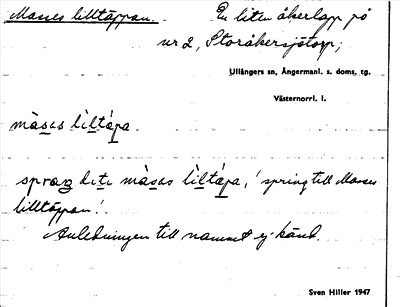 Masses lilltäppan. En liten åkerlapp på
nr 2, Storåkersjötorp;
Ullångers sn, Ångermanl. s. doms. tg.
Västernorrl. l.
màsas lìltápa.
spraŋ diti màsas lìltápa, 'spring till Masses
lilltäppan'.
Anledningen till namnet ej känd.
Sven Hiller 1947